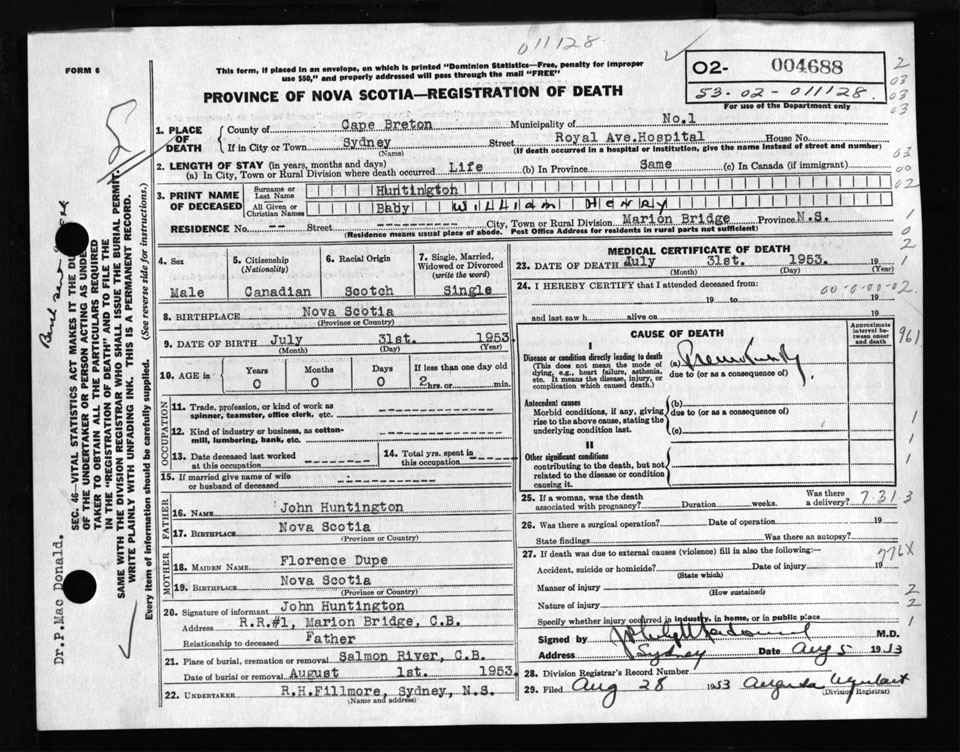 011128
FORM 6
This form, if placed in an envelope, on which is printed "Dominion Statistics—Free, penalty for improper
use $50," and properly addressed will pass through the mail "FREE"
02- 004688
53-02-011128.
For use of the Department only
PROVINCE OF NOVA SCOTIA—REGISTRATION OF DEATH
2
03
03
03
00
02
1
0
2
1
1. PLACE OF DEATH County of Cape Breton Municipality of No.1
If in City or Town Sydney (Name) Street Royal Ave.Hospital House No.
(If death occurred in a hospital or institution, give the name instead of street and number)
2. LENGTH OF STAY (in years, months and days)
(a) In City, Town or Rural Division where death occurred Life (b) In Province Same (c) In Canada (if immigrant)
3. PRINT NAME OF DECEASED
Surname or Last Name Huntington
All Given or Christian Names Baby William Henry
RESIDENCE No. -- Street City, Town or Rural Division Marion Bridge Province N.S.
(Residence means usual place of abode. Post Office Address for residents in rural parts not sufficient)
4. Sex Male
5. Citizenship (Nationality) Canadian
6. Racial Origin Scotch
7. Single, Married, Widowed or Divorced (write the word) Single
8. BIRTHPLACE Nova Scotia
(Province or Country)
9. DATE OF BIRTH July 31st. 1953
(Month) (Day) (Year)
10. AGE is Years 0 Months 0 Days 0 If less than one day old 2 hrs. or min.
OCCUPATION
11. Trade, profession, or kind of work as
spinner, teamster, office clerk, etc.
12. Kind of industry or business, as cotton-
mill, lumbering, bank, etc.
13. Date deceased last worked
at this occupation
14. Total yrs. spent in
this occupation
15. If married give name of wife
or husband of deceased
FATHER
16. NAME John Huntington
17. BIRTHPLACE Nova Scotia
(Province or Country)
MOTHER
18. MAIDEN NAME Florence Dupe
19. BIRTHPLACE Nova Scotia
(Province or Country)
20. Signature of informant John Huntington
Address R.R.#1, Marion Bridge, C.B.
Relationship to deceased Father
21. Place of burial, cremation or removal Salmon River, C.B.
Date of burial or removal August 1st. 1953.
(Month) (Day) (Year)
22. UNDERTAKER R.H.Fillmore, Sydney, N.S.
(Name and address)
MEDICAL CERTIFICATE OF DEATH
23. DATE OF DEATH July 31st. 1953. 19
(Month) (Day) (Year)
24. I HEREBY CERTIFY that I attended deceased from:
00-0-00-02.
19 to 19
and last saw h alive on 19
CAUSE OF DEATH
Approximate interval between onset and death
961
I
Disease or condition directly leading to death
(This does not mean the mode of
dying, e.g., heart failure, asthenia,
etc. It means the disease, injury, or
complication which caused death.)
(a) Prematurity
due to (or as a consequence of)
Antecedent causes
Morbid conditions, if any, giving
rise to the above cause, stating the
underlying condition last.
(b)
due to (or as a consequence of)
(c)
1
1
1
II
Other significant conditions
contributing to the death, but not
related to the disease or condition
causing it.
25. If a woman, was the death
associated with pregnancy? Duration weeks. Was there a delivery? 7.31.3
26. Was there a surgical operation? Date of operation 19
State findings Was there an autopsy?
27. If death was due to external causes (violence) fill in also the following:—
776X
Accident, suicide or homicide? Date of injury 19
(State which)
Manner of injury 2
(How sustained)
Nature of injury 2
Specify whether injury occurred in industry, in home, or in public place 1
Signed by M.D.
Address Sydney Date Aug 5 1953
28. Division Registrar's Record Number
29. Filed Aug 28 1953
(Division Registrar)
Dr.P.Mac Donald.
SEC. 46—VITAL STATISTICS ACT MAKES IT THE
OF THE UNDERTAKER OR PERSON ACTING AS
TAKER TO OBTAIN ALL THE PARTICULARS REQUIRED
IN THE "REGISTRATION OF DEATH" AND TO FILE THE
SAME WITH THE DIVISION REGISTRAR WHO SHALL ISSUE THE BURIAL PERMIT.
WRITE PLAINLY WITH UNFADING INK. THIS IS A PERMANENT RECORD.
Every item of information should be carefully supplied. (See reverse side for instructions.)